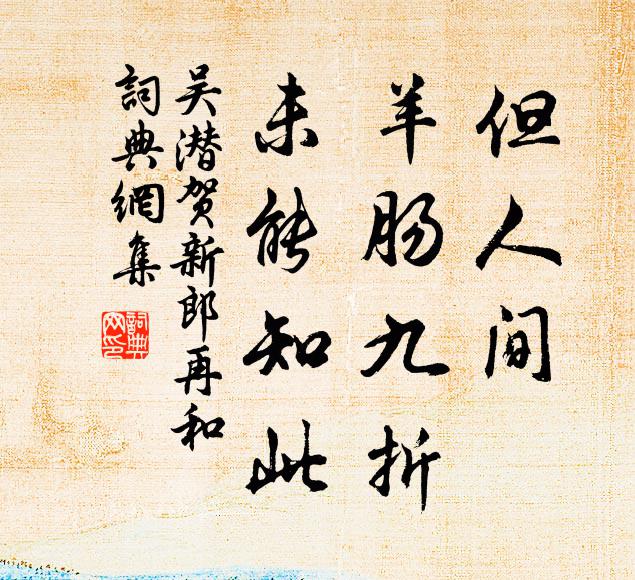 但人间
羊肠九折
未能知此
吴潜贺新郎再和
詞典網集
詞典
网印